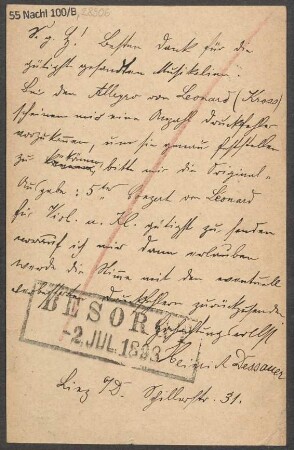 55 Nachl 100/B
S. g. H! Besten Dank für die
gütigst gesandten Musikalien.
Bei dem Allegro von Leonard (Kross)
scheinen mir eine Anzahl Druckfehler
vorzukommen, um sie genau feststellen
zu können, bitte mir die Original-
Ausgabe: 5tes Conzert von Leonard
für Viol. u. Kl. gütigst zu senden
worauf ich mir dann erlauben
werde die Stimme mit den eventuell
Druckfehlern zurückzusenden.
Hochachtungsvollst
Heinrich Dessauer
Linz a/D. Schillerstr. 31.
BESOR
-2.JUL.1893